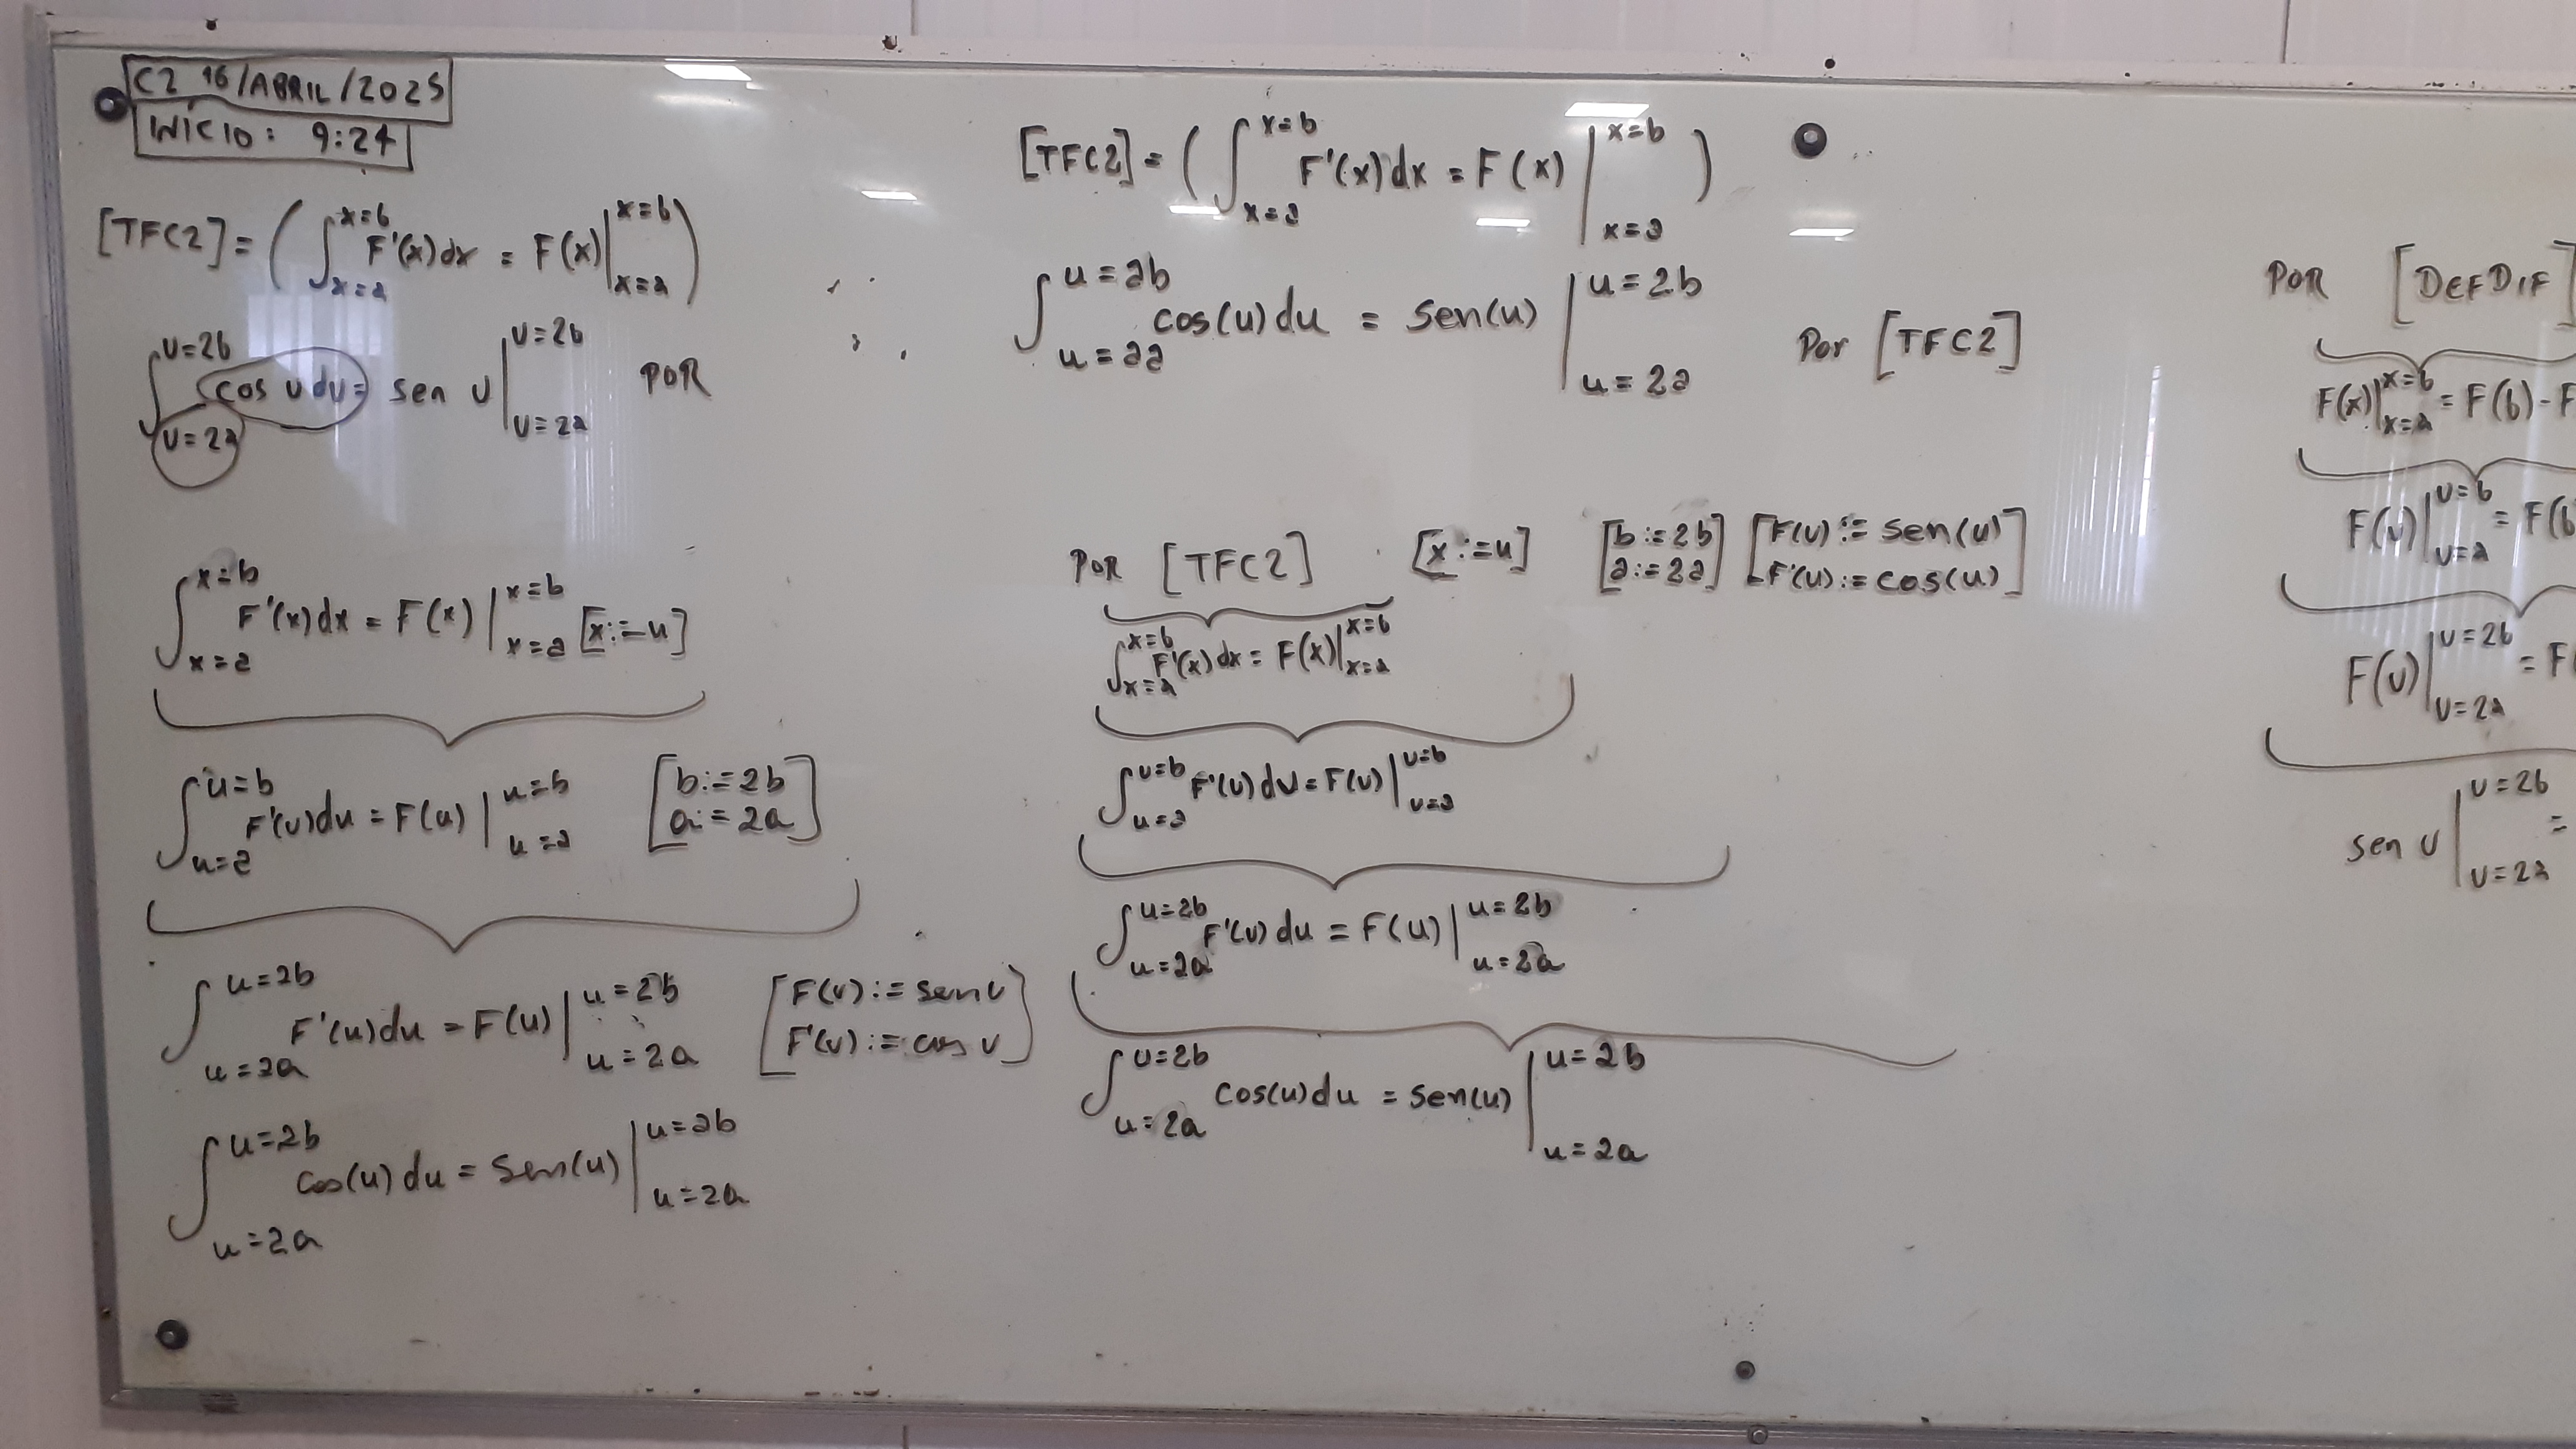 C2 16/ABRIL/2025
INÍCIO: 9:24
[TFC2] = ( ∫_{x=a}^{x=b} F'(x)dx = F(x)|_{x=a}^{x=b} )
∫_{u=2a}^{u=2b} cos u du = sen u|_{u=2a}^{u=2b} POR
∫_{x=a}^{x=b} F'(x)dx = F(x)|_{x=a}^{x=b} [x:=u]
∫_{u=a}^{u=b} F'(u)du = F(u)|_{u=a}^{u=b} [b:=2b
a:=2a]
∫_{u=2a}^{u=2b} F'(u)du = F(u)|_{u=2a}^{u=2b} [F(u):=sen u
F'(u):=cos u]
∫_{u=2a}^{u=2b} cos(u)du = sen(u)|_{u=2a}^{u=2b}
[TFC2] = ( ∫_{x=a}^{x=b} F'(x)dx = F(x)|_{x=a}^{x=b} )
∫_{u=2a}^{u=2b} cos(u)du = sen(u)|_{u=2a}^{u=2b} Por [TFC2]
POR [TFC2] [x:=u] [b:=2b
a:=2a] [F(u):=sen(u)
F'(u):=cos(u)]
∫_{x=a}^{x=b} F'(x)dx = F(x)|_{x=a}^{x=b}
∫_{u=a}^{u=b} F'(u)du = F(u)|_{u=a}^{u=b}
∫_{u=2a}^{u=2b} F'(u)du = F(u)|_{u=2a}^{u=2b}
∫_{u=2a}^{u=2b} cos(u)du = sen(u)|_{u=2a}^{u=2b}
POR [DEFDIF]
F(x)|_{x=a}^{x=b} = F(b) - F
F(u)|_{u=a}^{u=b} = F(b
F(u)|_{u=2a}^{u=2b} = F
sen u|_{u=2a}^{u=2b} =